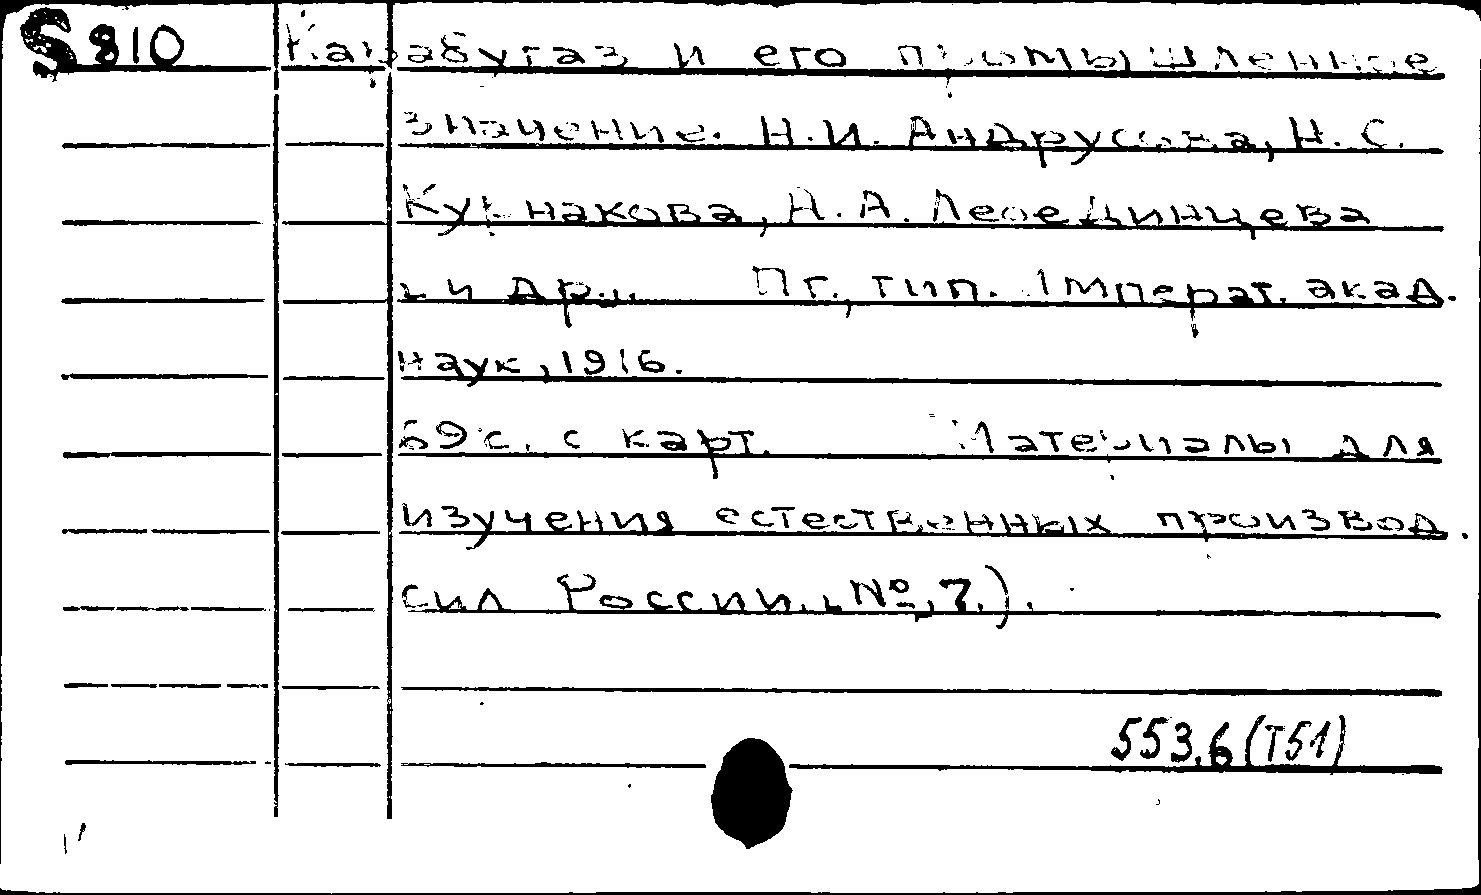 S 810 Карабугаз и его промышленное
значение. Н.И. Андрусова, Н.С.
Курнакова, Н.А. Лебединцева
и др. Пг., тип. Императ. акад.
наук, 1916.
69 с. с карт. Материалы для
изучения естественных производ.
сил России., № 7.).
553.6 (Т51)